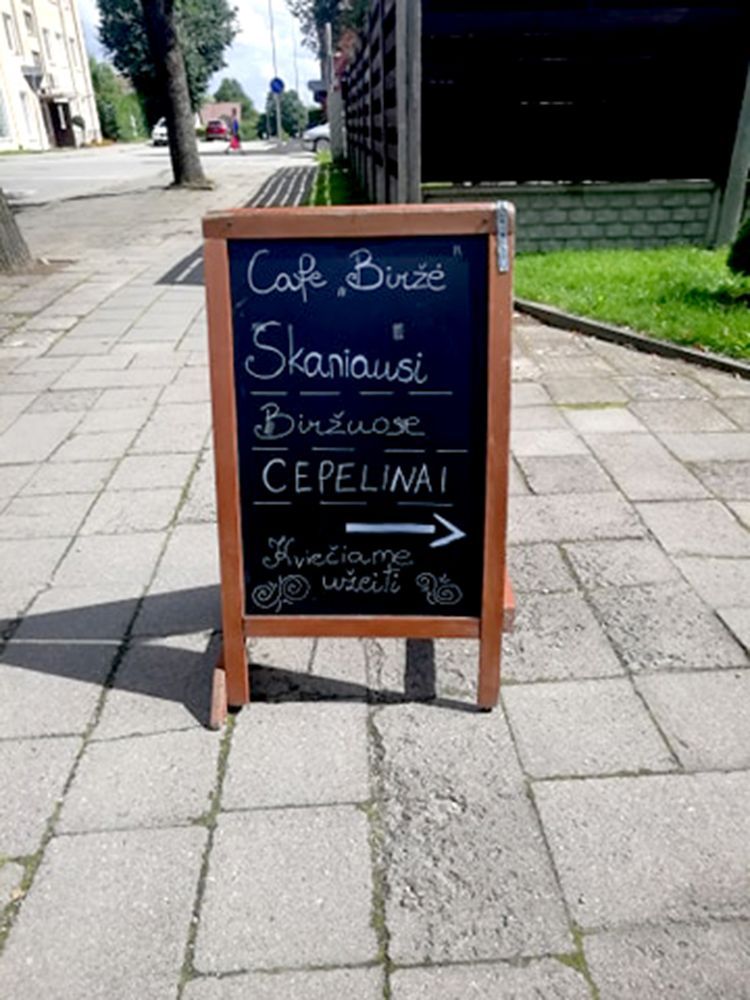 Cafe „Biržė"
Skaniausi
Biržuose
CEPELINAI
Kviečiame
užeiti